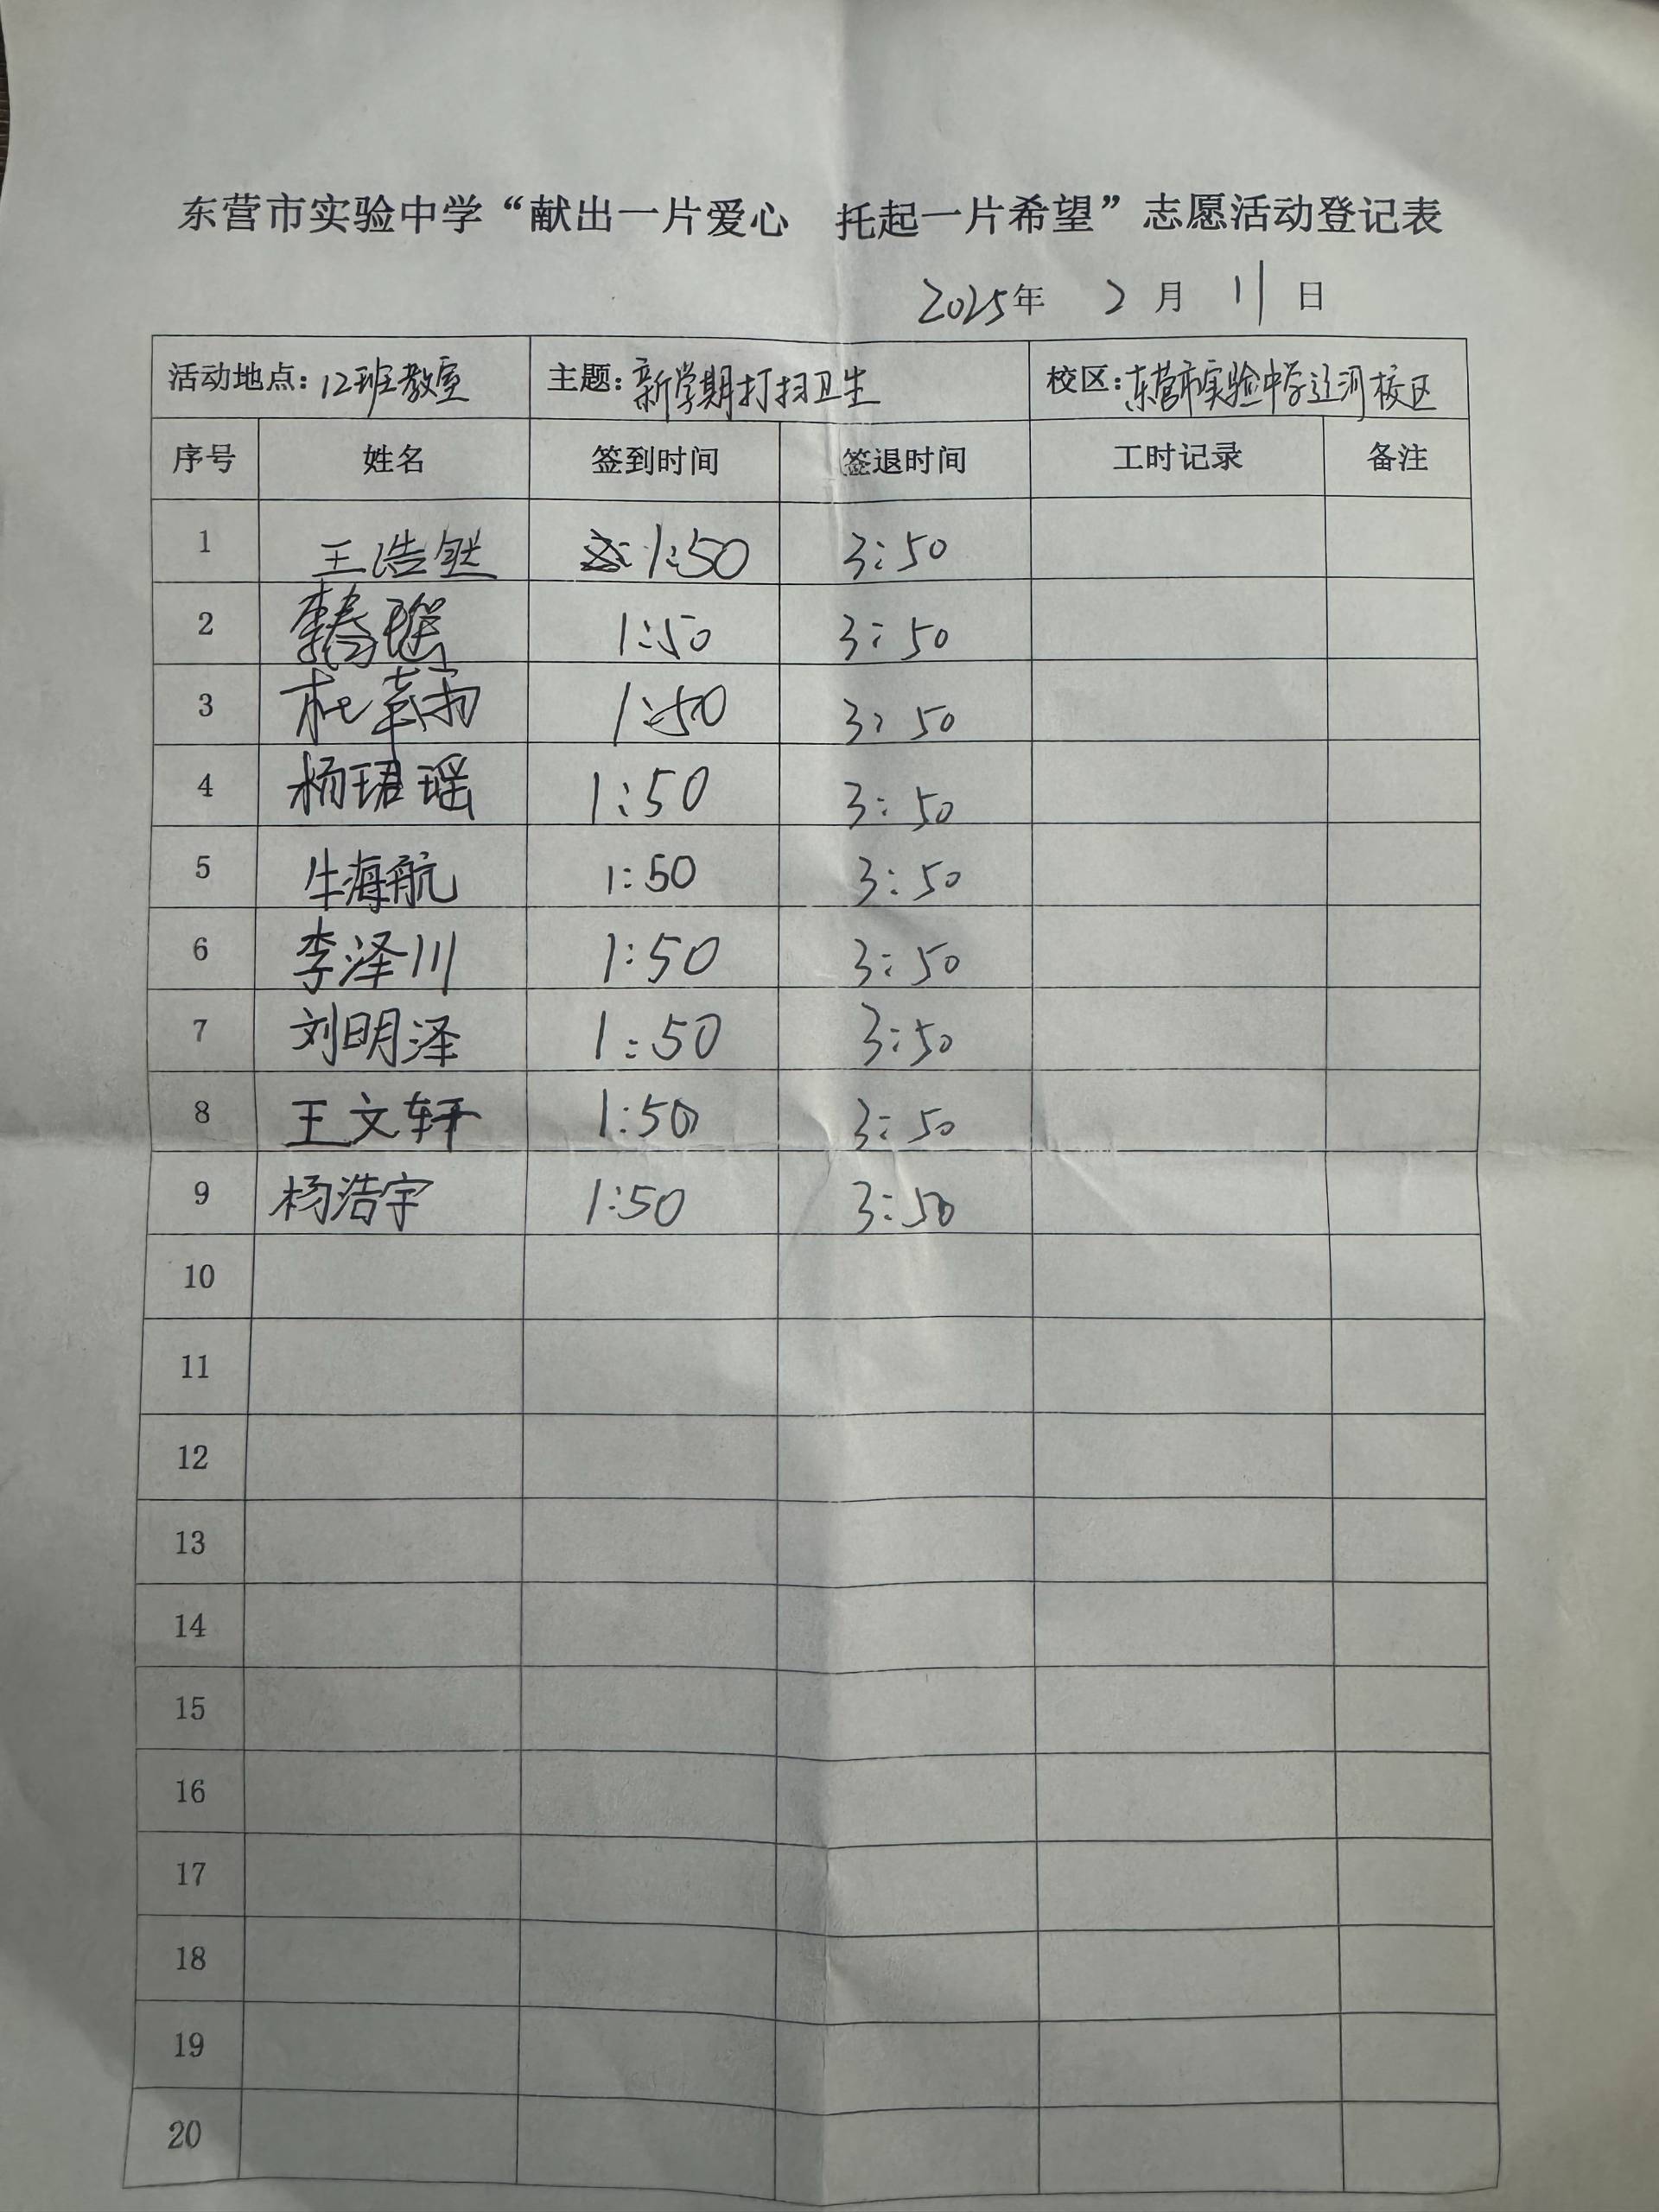 东营市实验中学“献出一片爱心 托起一片希望”志愿活动登记表
2025年 2月 11日
活动地点:12班教室 主题:新学期打扫卫生 校区:东营市实验中学辽河校区
序号 姓名 签到时间 签退时间 工时记录 备注
1 王浩然 1:50 3:50
2 1:50 3:50
3 杜 1:50 3:50
4 杨珺瑶 1:50 3:50
5 牛海航 1:50 3:50
6 李泽川 1:50 3:50
7 刘明泽 1:50 3:50
8 王文轩 1:50 3:50
9 杨浩宇 1:50 3:50
10
11
12
13
14
15
16
17
18
19
20